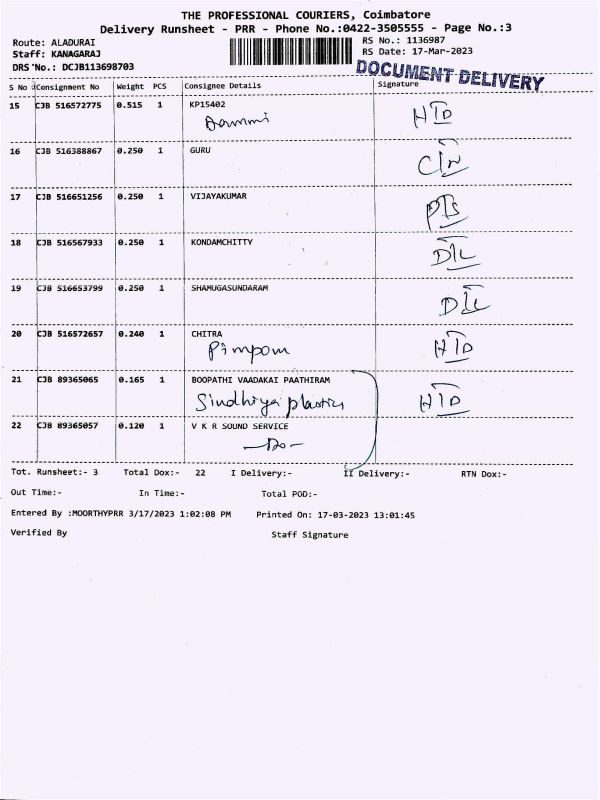 THE PROFESSIONAL COURIERS, Coimbatore
Delivery Runsheet - PRR - Phone No.:0422-3505555 - Page No.:3
Route: ALADURAI RS No.: 1136987
Staff: KANAGARAJ RS Date: 17-Mar-2023
DRS No.: DCJB113698703
DOCUMENT DELIVERY
S No Consignment No Weight PCS Consignee Details Signature
15 CJB 516572775 0.515 1 KP15402
HTD
16 CJB 516388867 0.250 1 GURU
17 CJB 516651256 0.250 1 VIJAYAKUMAR
18 CJB 516567933 0.250 1 KONDAMCHITTY
19 CJB 516653799 0.250 1 SHAMUGASUNDARAM
20 CJB 516572657 0.240 1 CHITRA
Pimpom HTD
21 CJB 89365065 0.165 1 BOOPATHI VAADAKAI PAATHIRAM
Sindhiya plastics HTD
22 CJB 89365057 0.120 1 V K R SOUND SERVICE
-Do-
Tot. Runsheet:- 3 Total Dox:- 22 I Delivery:- II Delivery:- RTN Dox:-
Out Time:- In Time:- Total POD:-
Entered By :MOORTHYPRR 3/17/2023 1:02:08 PM Printed On: 17-03-2023 13:01:45
Verified By Staff Signature